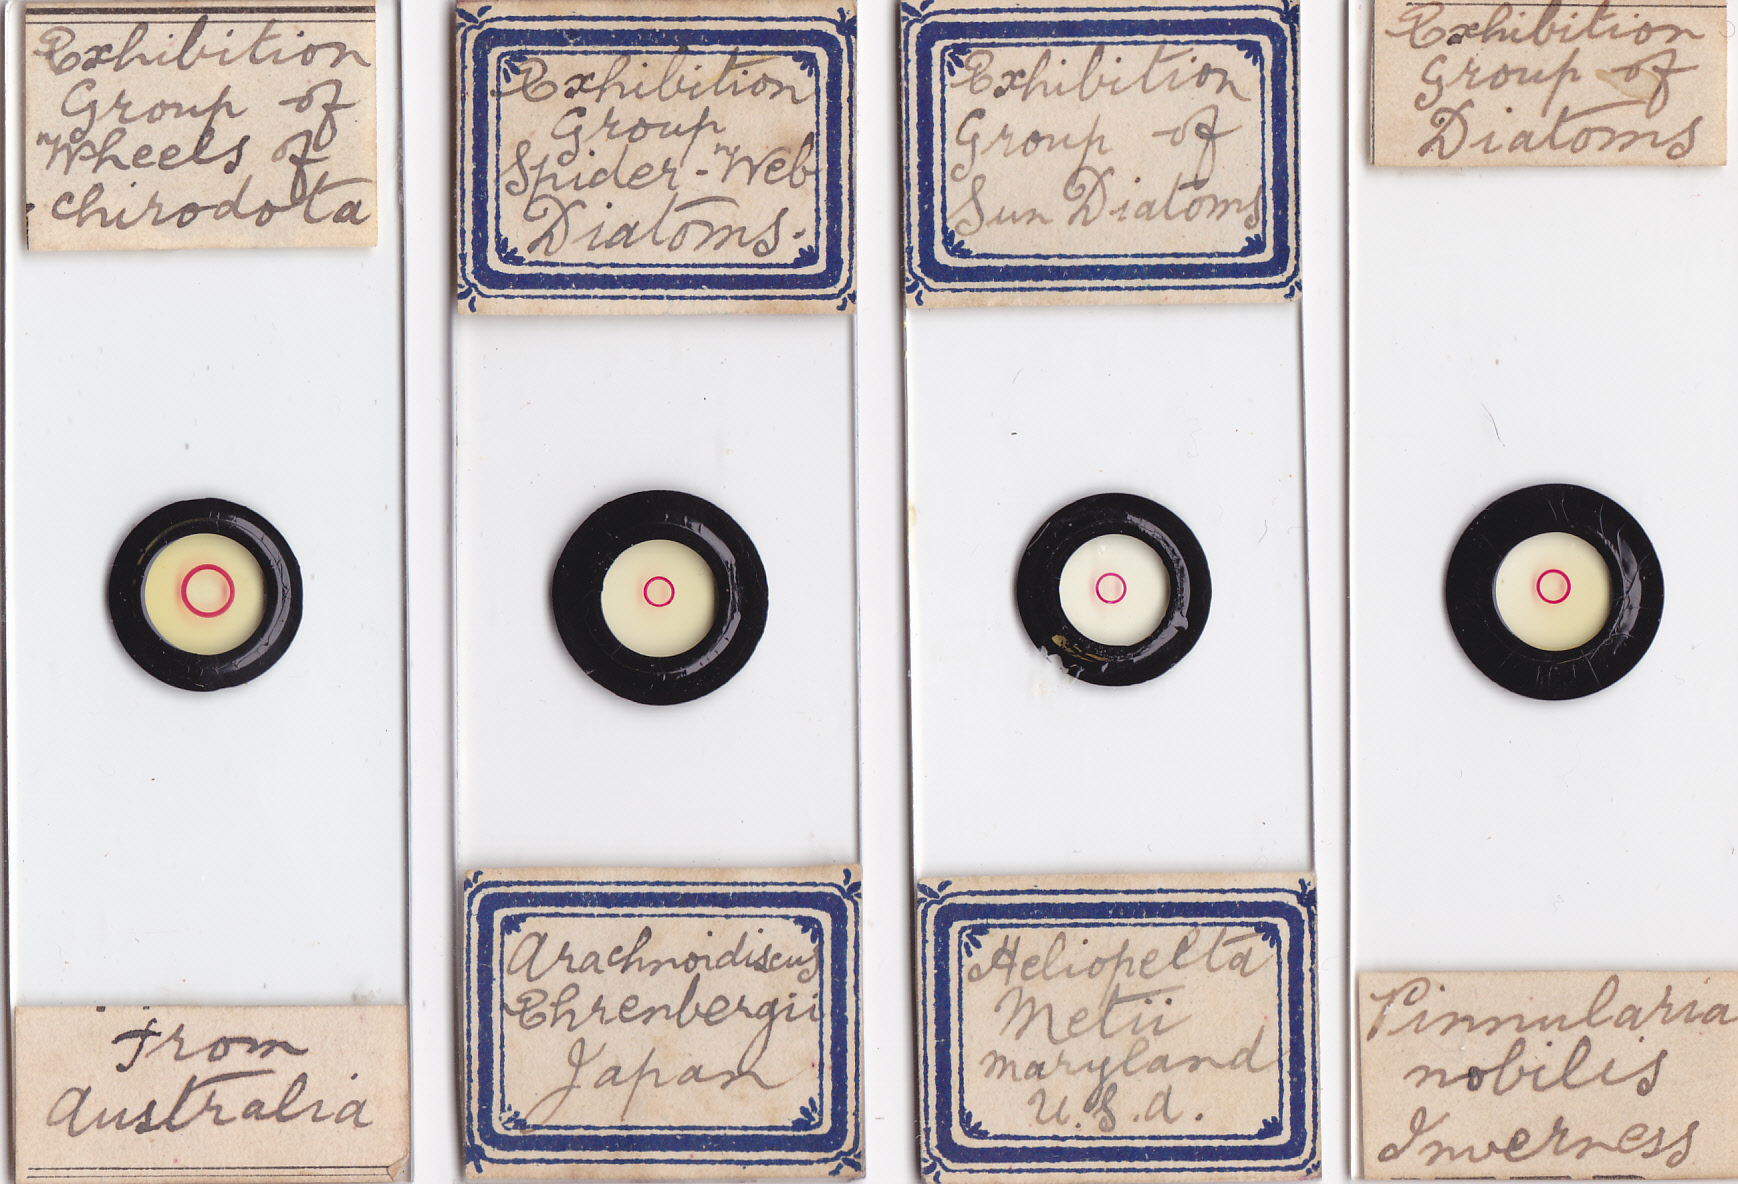 Exhibition
Group of
Wheels of
chirodota
from
Australia
Exhibition
Group
Spider-Web
Diatoms.
Arachnoidiscus
Ehrenbergii
Japan
Exhibition
Group of
Sun Diatoms
Heliopelta
Metii
maryland
U.S.A.
Exhibition
Group of
Diatoms
Pinnularia
nobilis
Inverness